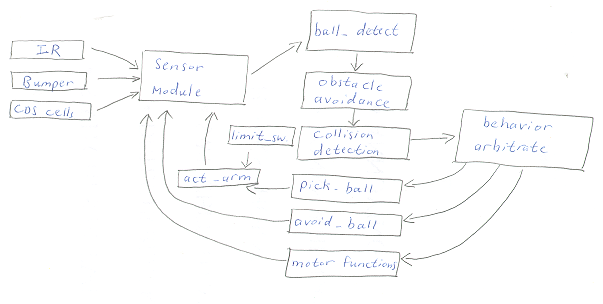 IR
Bumper
CDS cells
Sensor
Module
ball_detect
obstacle
avoidance
limit_sw.
Collision
detection
behavior
arbitrate
act_arm
pick_ball
avoid_ball
motor functions